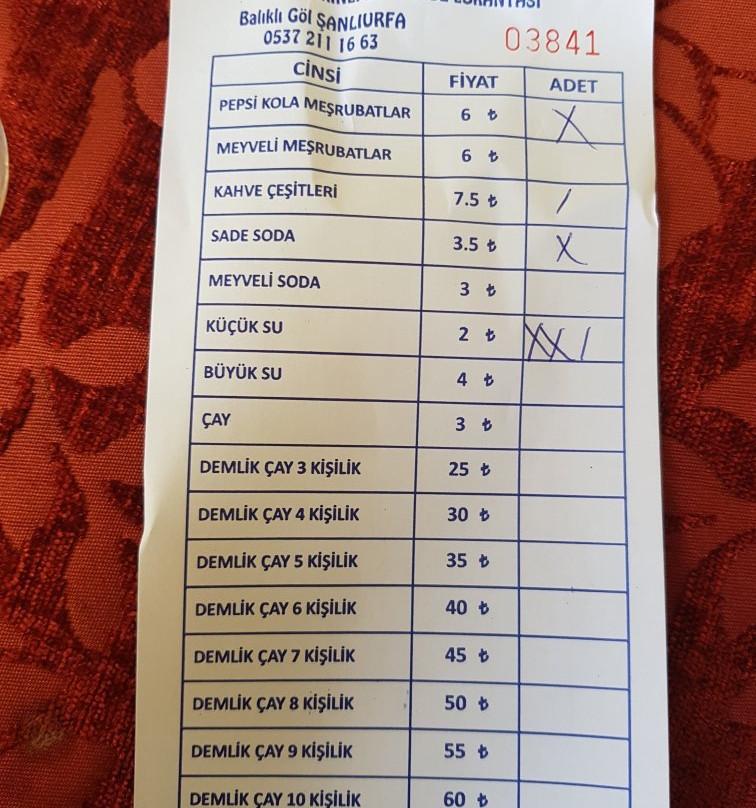 Balıklı Göl ŞANLIURFA
0537 211 16 63
03841
CİNSİ FİYAT ADET
PEPSİ KOLA MEŞRUBATLAR 6 ₺ X
MEYVELİ MEŞRUBATLAR 6 ₺
KAHVE ÇEŞİTLERİ 7.5 ₺ /
SADE SODA 3.5 ₺ X
MEYVELİ SODA 3 ₺
KÜÇÜK SU 2 ₺ XX/
BÜYÜK SU 4 ₺
ÇAY 3 ₺
DEMLİK ÇAY 3 KİŞİLİK 25 ₺
DEMLİK ÇAY 4 KİŞİLİK 30 ₺
DEMLİK ÇAY 5 KİŞİLİK 35 ₺
DEMLİK ÇAY 6 KİŞİLİK 40 ₺
DEMLİK ÇAY 7 KİŞİLİK 45 ₺
DEMLİK ÇAY 8 KİŞİLİK 50 ₺
DEMLİK ÇAY 9 KİŞİLİK 55 ₺
DEMLİK ÇAY 10 KİŞİLİK 60 ₺